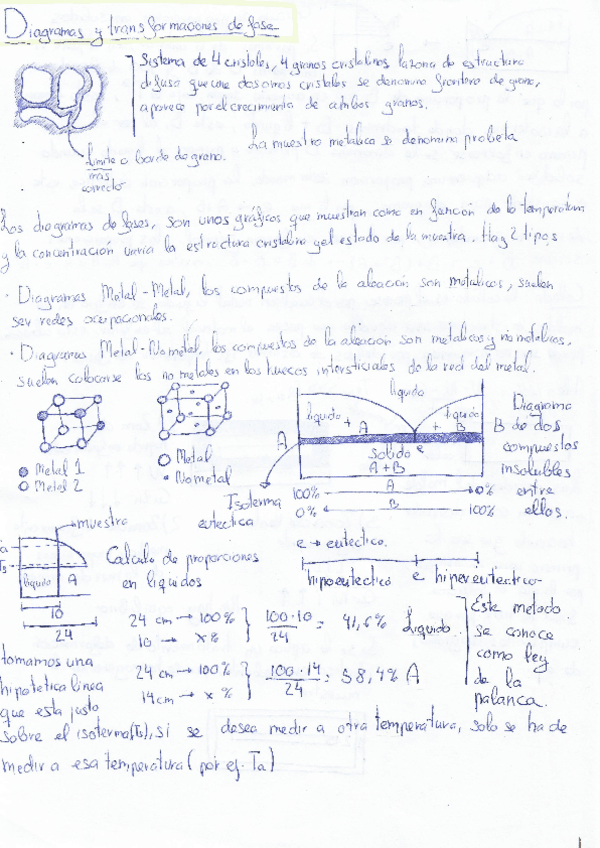 Diagramas y transformaciones de fase
Sistema de 4 cristales, 4 granos cristalinos la zona de estructura
difusa que une dos o mas cristales se denomina frontera de grano,
aparece por el crecimiento de ambos granos.
La muestra metalica se denomina probeta
Limite o borde de grano.
mas
correcto
Los diagramas de fases, son unos gráficos que muestran como en función de la temperatura
y la concentración varia la estructura cristalina y el estado de la muestra. Hay 2 tipos
· Diagramas Metal-Metal, los compuestos de la aleación son metalicos, suelen
ser redes ocupacionales.
· Diagramas Metal-No metal, los compuestos de la aleación son metalicos y no metalicos,
suelen colocarse los no metales en los huecos intersticiales de la red del metal.
Metal 1
Metal 2
Metal
No metal
liquido
liquido + A
liquido + B
A
B
e
Solido
A + B
Isoterma
eutectica
100% A 0%
0% B 100%
e → eutectico.
hipoeutectico e hipereutectico
Diagrama
de dos
compuestos
insolubles
entre
ellos.
muestra
Ta
Ts
liquido A
10
24
Calculo de proporciones
en liquidos
24 cm → 100%
10 → x%
100·10
24
= 41,6% Liquido.
24 cm → 100%
14cm → x %
100·14
24
= 58,4% A
Este metodo
se conoce
como ley
de la
palanca.
tomamos una
hipotetica linea
que esta justo
sobre el isoterma(Ts), si se desea medir a otra temperatura, solo se ha de
medir a esa temperatura (por ej. Ta)